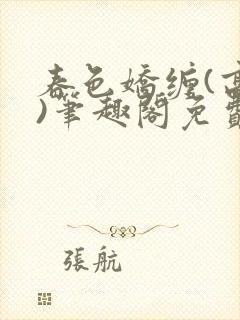 春色嬌纏(高
)筆趣閣免費
張航